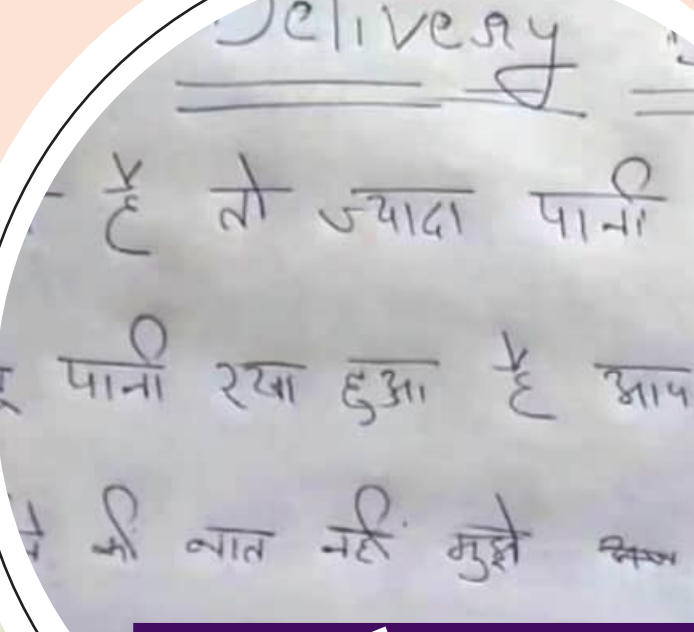 Delivery
है तो ज्यादा पानी
पानी रखा हुआ है आप
की बात नहीं मुझे